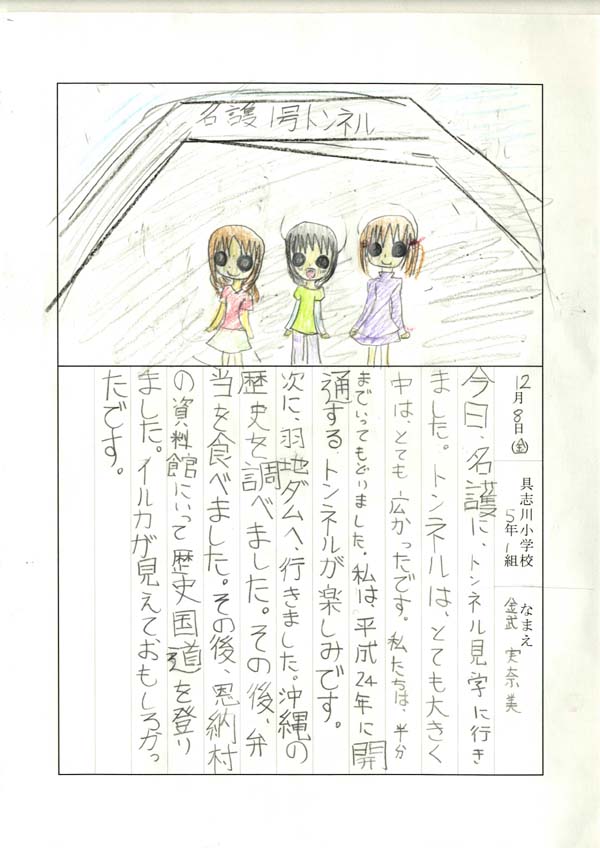 名護1号トンネル
12月8日(金)
具志川小学校
5年1組
なまえ
金武 実奈美
今日、名護に、トンネル見学に行き
ました。トンネルは、とても大きく
中は、とても広かったです。私たちは、半分
までいってもどりました。私は、平成24年に開
通する、トンネルが楽しみです。
次に、羽地ダムへ、行きました。沖縄の
歴史を調べました。その後、弁
当を食べました。その後、恩納村
の資料館にいって歴史国道を登り
ました。イルカが見えておもしろかっ
たです。